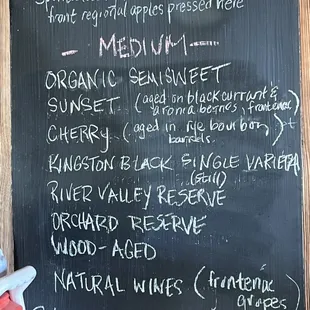 front regional apples pressed here
- MEDIUM -
ORGANIC SEMISWEET
SUNSET (aged on blackcurrant &
aronia berries, frontenac)
CHERRY (aged in rye bourbon
barrels)
KINGSTON BLACK SINGLE VARIETAL
(still)
RIVER VALLEY RESERVE
ORCHARD RESERVE
WOOD-AGED
NATURAL WINES (frontenac
grapes)